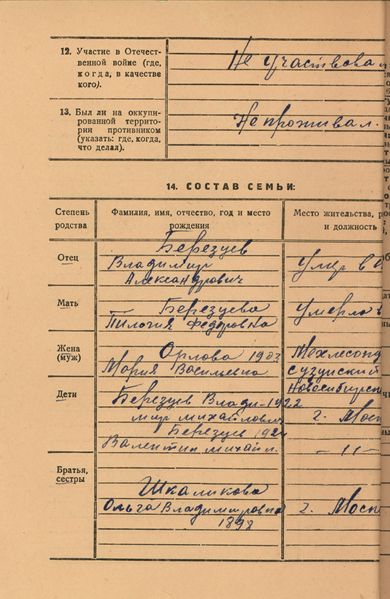 12. Участие в Отечест-
венной войне (где,
когда, в качестве
кого).
Не участвовал
13. Был ли на оккупи-
рованной террито-
рии противником
(указать: где, когда,
что делал).
Не проживал.
14. СОСТАВ СЕМЬИ:
Степень
родства
Фамилия, имя, отчество, год и место
рождения
Место жительства, р
и должность
Отец
Березуев
Владимир
Александрович
Умер в
Мать
Березуева
Пилогия Федоровна
Умерла в
Жена
(муж)
Орлова
Мария Васильевна
Сузунский
Новосибирск
Дети
Березуев Влади- 1922
мир Михайлович
г. Моск
Березуев
Валентин Михайл.
- 11 -
Братья,
сестры
Шкаликова
Ольга Владимировна
1898
г. Моск